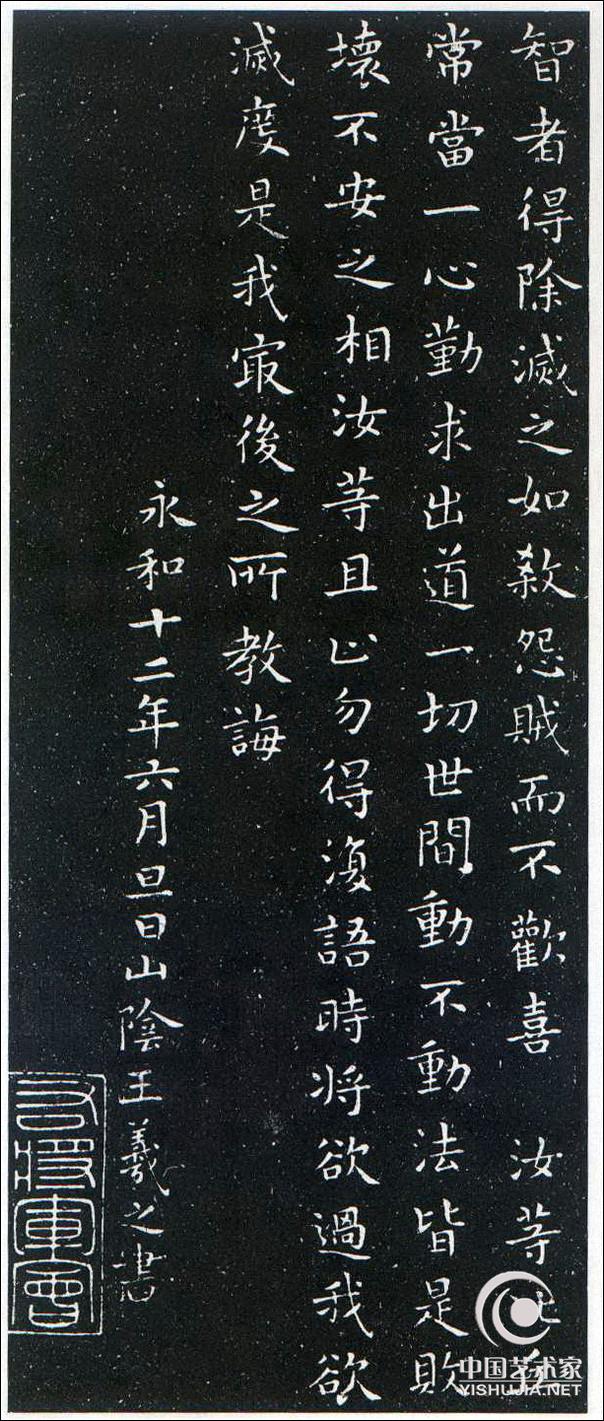 智者得除滅之如殺怨賊而不歡喜 汝等比丘
常當一心勤求出道一切世間動不動法皆是敗
壞不安之相汝等且止勿得復語時将欲過我欲
滅度是我冣後之所教誨
永和十二年六月旦日山陰王羲之書
右将軍會
中国艺术家
YISHUJIA.NET